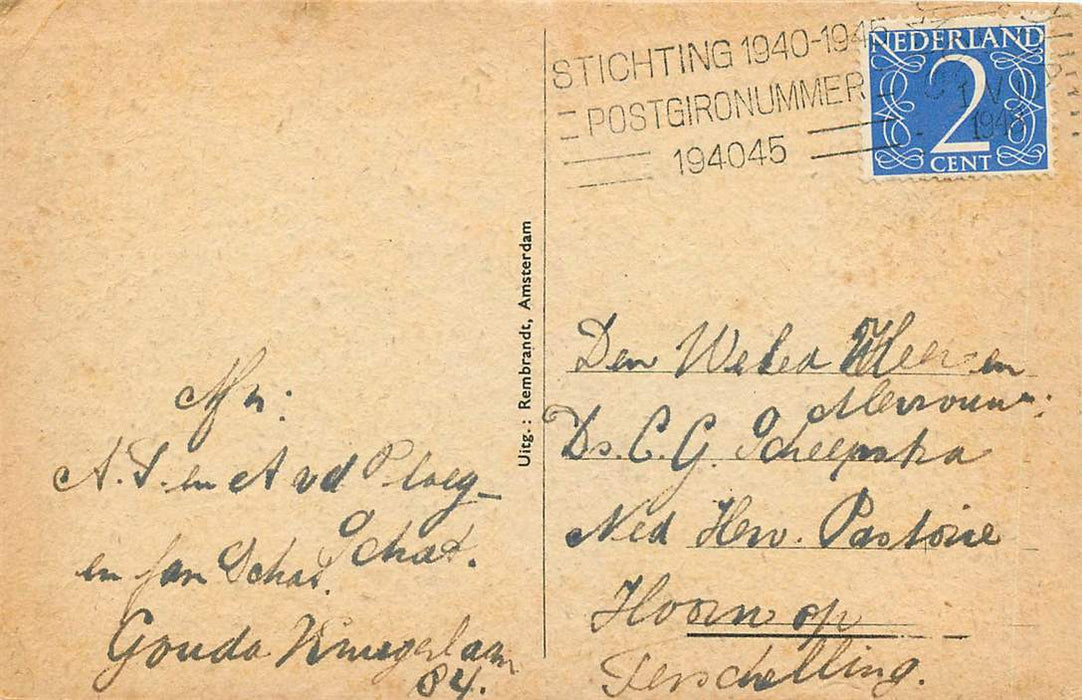 STICHTING 1940-1945
POSTGIRONUMMER
194045
NEDERLAND
2
CENT
Uitg.: Rembrandt, Amsterdam
Afn:
A.S. en A vd Ploeg-
Schat.
en fam Schat.
Gouda
84.
Den Weled Heer en
Mevrouw:
Ds. C. G. Scheepstra
Ned Herv. Pastorie
Hoorn op
Terschelling.